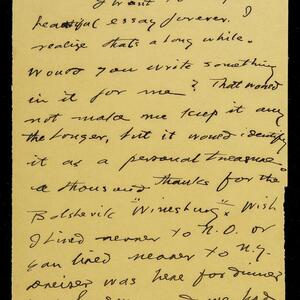 I want to
beautiful essay forever. I
realize thats a long while.
Would you write something
in it for me? That would
not make me keep it any
the longer, but it would identify
it as a personal treasure.
a thousand thanks for the
Bolshevik "Winesburg". Wish
I lived nearer to N.O. or
you lived nearer to N.Y.
Dreiser was here for dinner